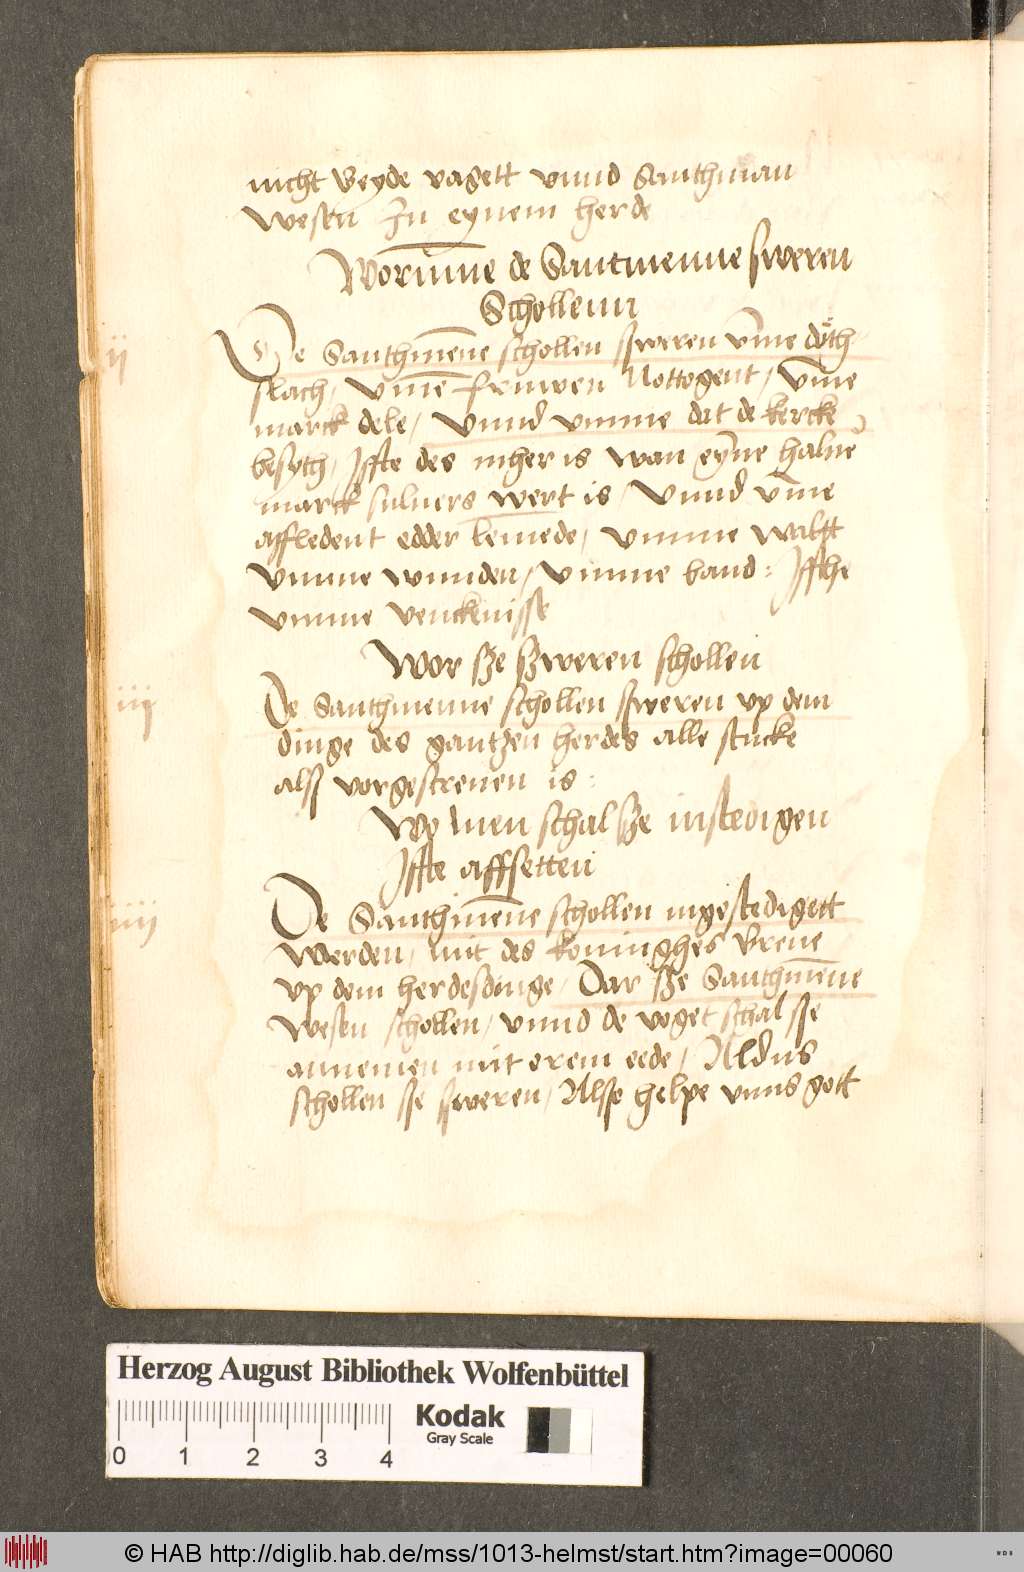 nicht beyde vagett vnnd Santhman
wesen In eynem herde
Worūme de Santmenne sweren
Schollenn
ij
De Santhmēne schollen sweren vm̄e dóth
slach, vmē fruwen Nottogent, vm̄e
marck dele, vnnd vmme dat de kercke
besyth, Jfte des mher is wan eyn̄e halue
marck suluers wert is, vnnd vm̄e
affledent edder lemede, vmme walt
vmme wunden, vmme band: Jffthe
vmme venckenisse
Wor sze szweren schollen
iij
De Santhmenne schollen sweren vp dem
dinge des gantzen herdes alle stucke
alsz vorgescreuen is:
Wo men schal sze instedigen
Jffte affsetten
iiij
De Santhmēne schollen ingestedigett
werden, mit des koninghes breue
vp dem herdesdinge, Dar sze Santhmēne
wesen schollen, vnnd de voget schal sse
annemen mit erem eede, Aldus
schollen sse sweren, Alsse helpe vnns gott
Herzog August Bibliothek Wolfenbüttel
0 1 2 3 4
Kodak
Gray Scale
© HAB http://diglib.hab.de/mss/1013-helmst/start.htm?image=00060